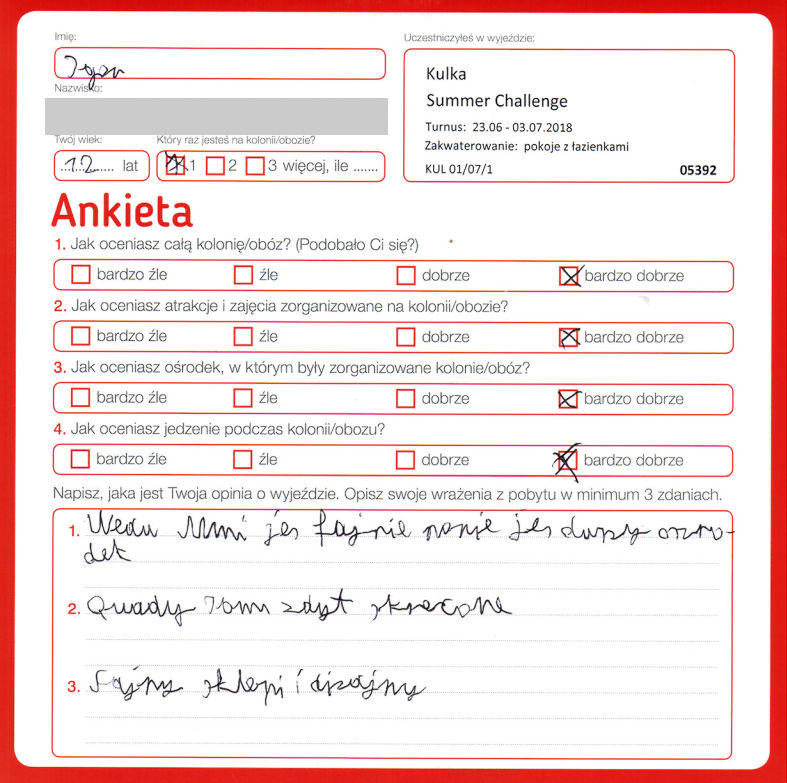 Imię:
Uczestniczyłeś w wyjeździe:
Igor
Kulka
Nazwisko:
Summer Challenge
Turnus: 23.06 - 03.07.2018
Twój wiek:
Który raz jesteś na kolonii/obozie?
Zakwaterowanie: pokoje z łazienkami
12 lat
1 2 3 więcej, ile .......
KUL 01/07/1
05392
Ankieta
1. Jak oceniasz całą kolonię/obóz? (Podobało Ci się?)
bardzo źle źle dobrze bardzo dobrze
2. Jak oceniasz atrakcje i zajęcia zorganizowane na kolonii/obozie?
bardzo źle źle dobrze bardzo dobrze
3. Jak oceniasz ośrodek, w którym były zorganizowane kolonie/obóz?
bardzo źle źle dobrze bardzo dobrze
4. Jak oceniasz jedzenie podczas kolonii/obozu?
bardzo źle źle dobrze bardzo dobrze
Napisz, jaka jest Twoja opinia o wyjeździe. Opisz swoje wrażenia z pobytu w minimum 3 zdaniach.
1. jes fajnie jes
2. Quady zdyt skrecone
3. Fajny sklepi i